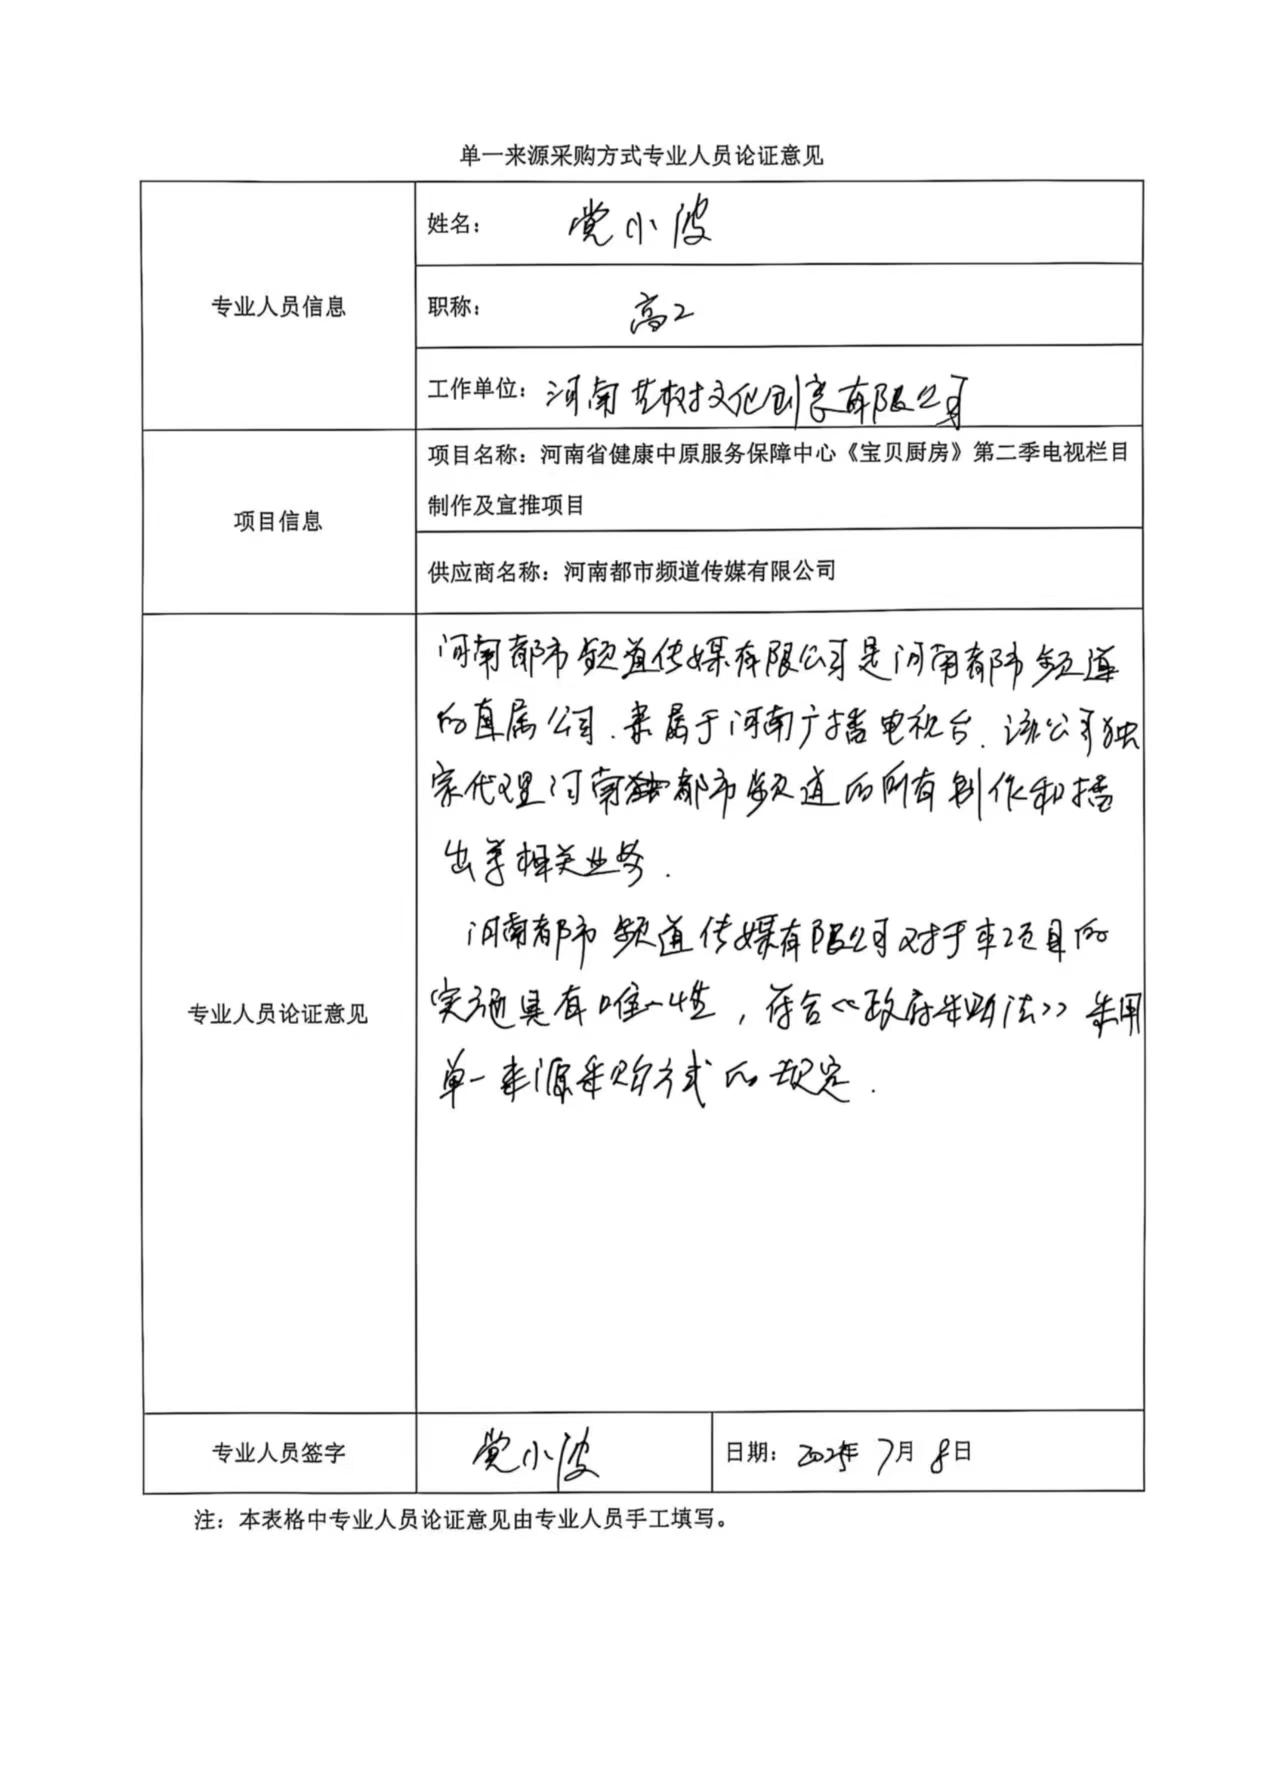 单一来源采购方式专业人员论证意见
专业人员信息
姓名： 党小波
职称： 高工
工作单位：河南艺树文化创意有限公司
项目信息
项目名称：河南省健康中原服务保障中心《宝贝厨房》第二季电视栏目
制作及宣推项目
供应商名称：河南都市频道传媒有限公司
专业人员论证意见
河南都市频道传媒有限公司是河南都市频道
的直属公司.隶属于河南广播电视台.该公司独
家代理河南都市频道的所有制作和播
出等相关业务.
河南都市频道传媒有限公司对于本项目的
实施具有唯一性，符合《政府采购法》采用
单一来源采购方式的规定.
专业人员签字
党小波
日期：2025年7月8日
注：本表格中专业人员论证意见由专业人员手工填写。